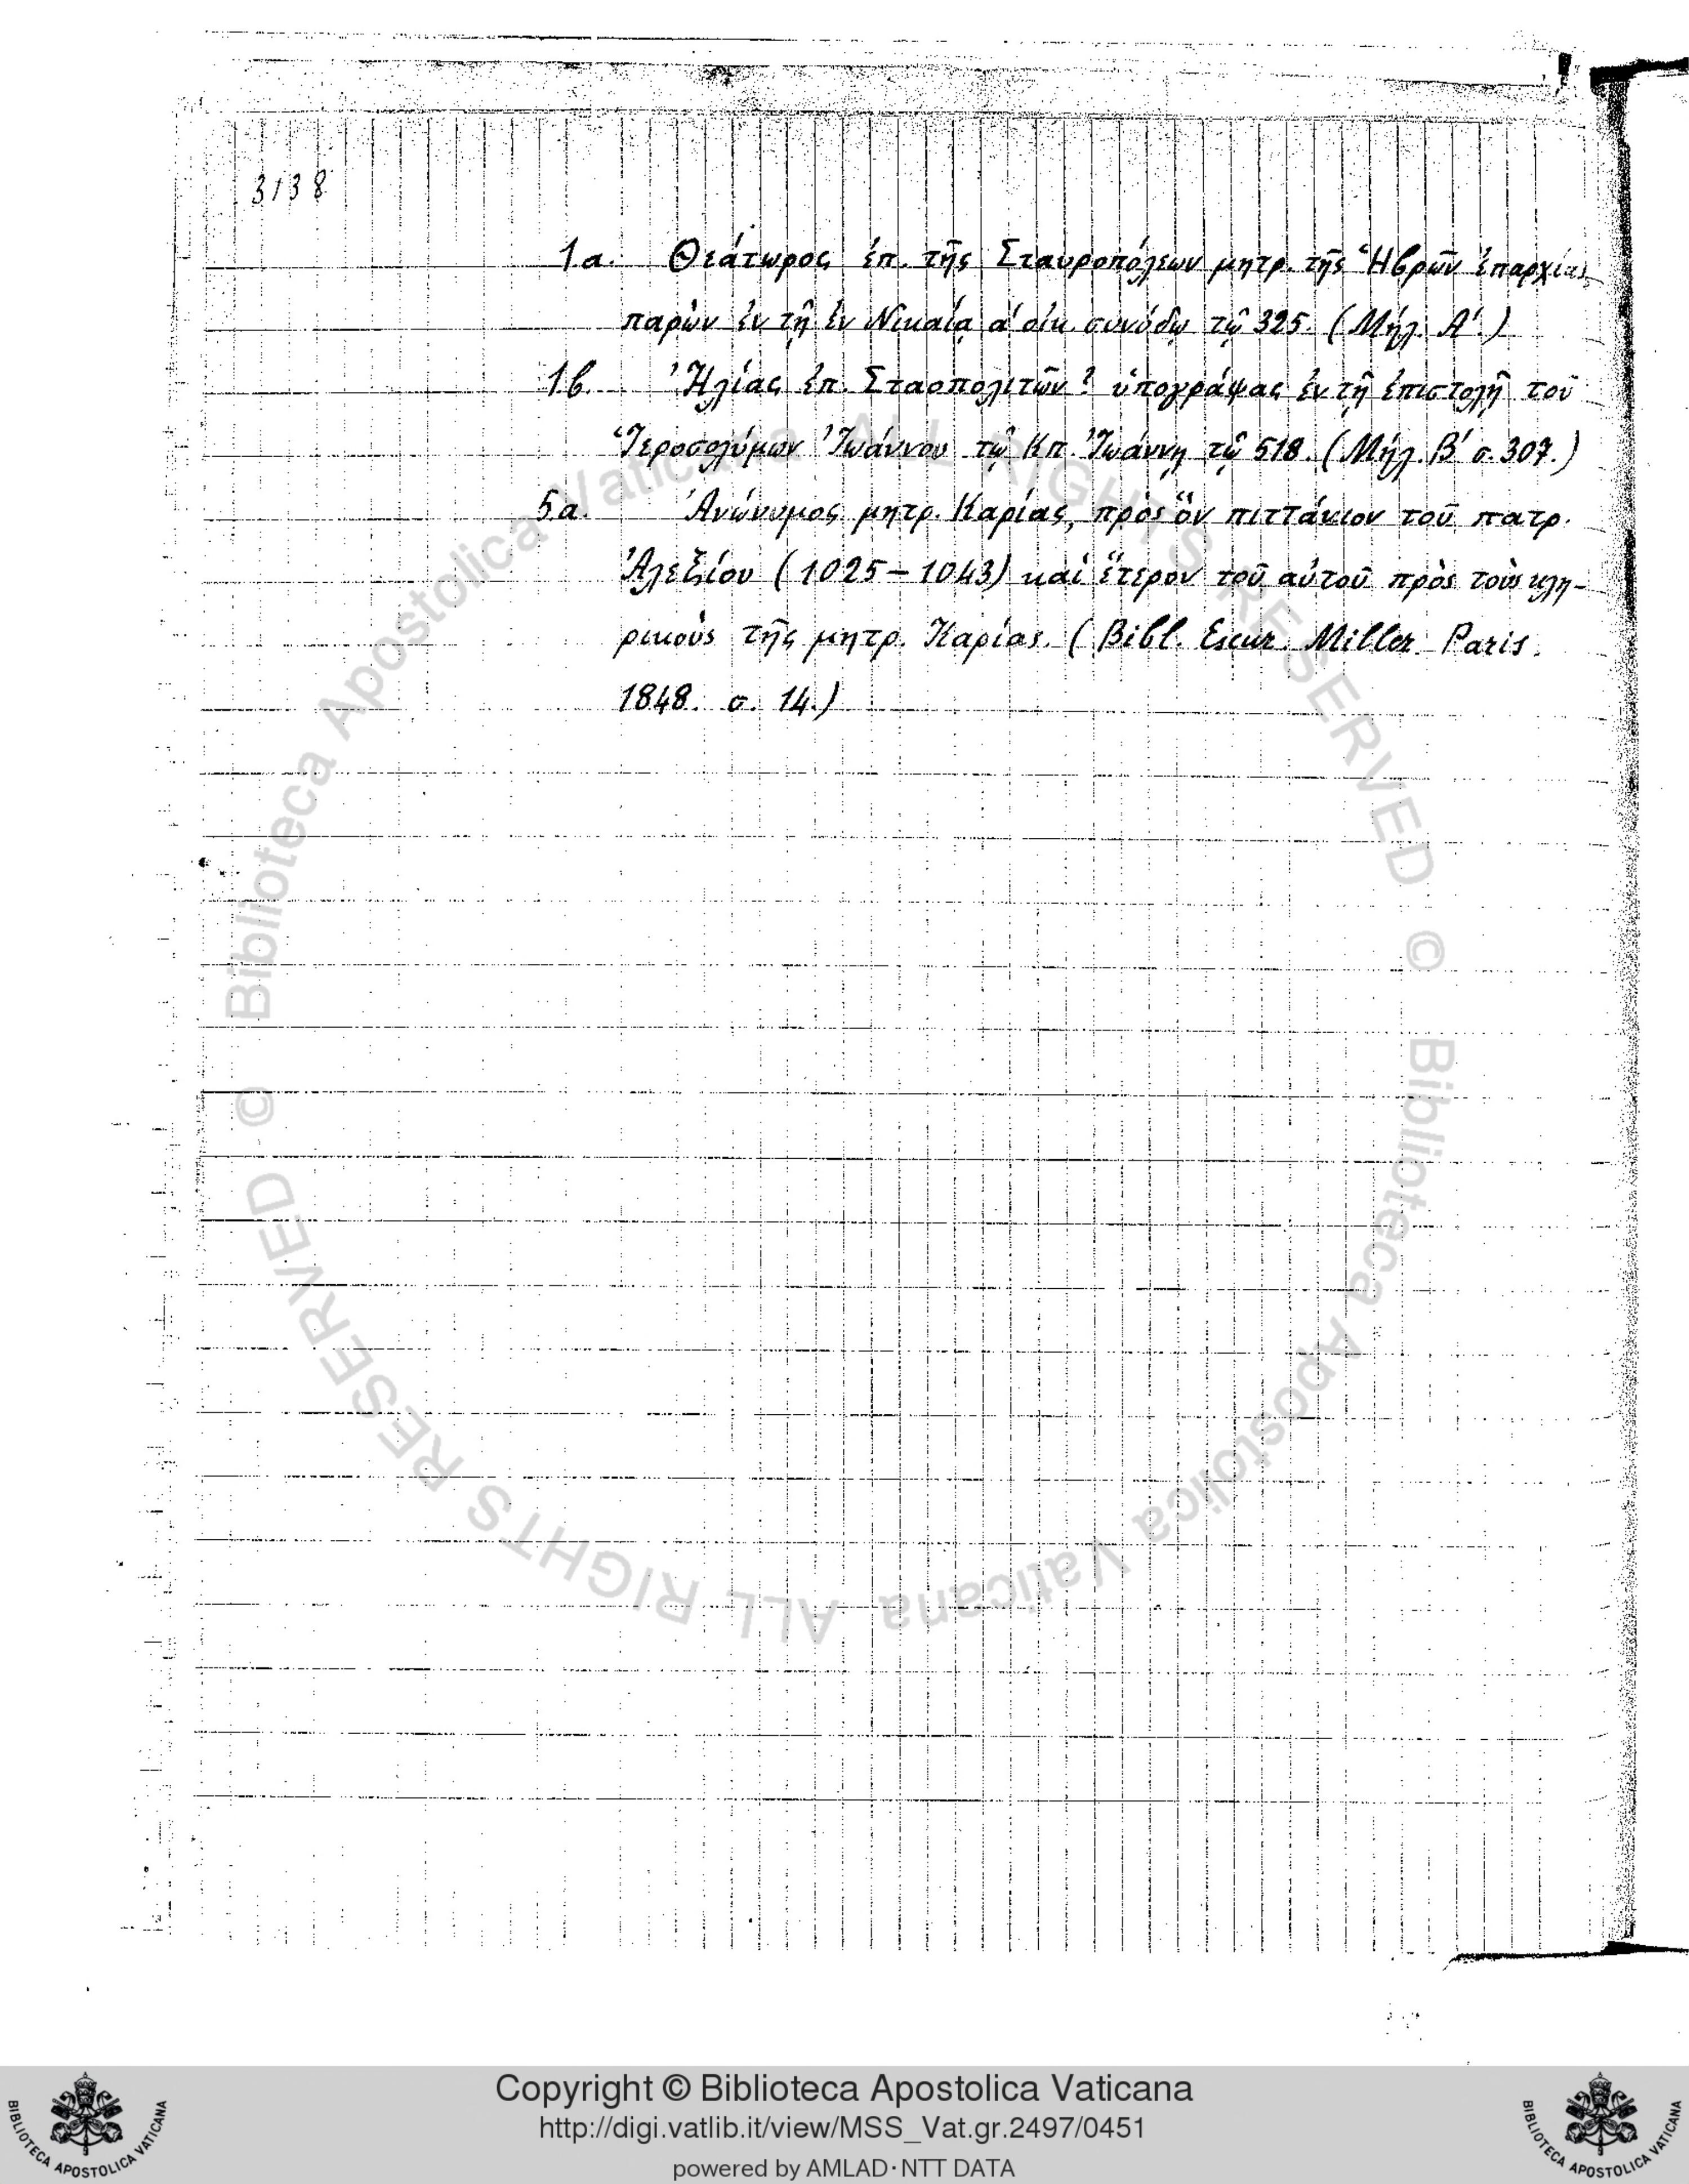 3138
1α. Θεάτωρος ἐπ. τῆς Σταυροπόλεων μητρ. τῆς Ἡβρῶν ἐπαρχίας
παρὼν ἐν τῇ ἐν Νικαίᾳ α΄ οἰκ. συνόδῳ τῷ 325. (Μήλ. Α΄.)
1β. Ἠλίας ἐπ. Σταοπολιτῶν? ὑπογράψας ἐν τῇ ἐπιστολῇ τοῦ
Ἱεροσολύμων Ἰωάννου τῷ Κπ. Ἰωάννῃ τῷ 518. (Μήλ. Β΄ σ. 307.)
5α. Ἀνώνυμος μητρ. Καρίας, πρὸς ὃν πιττάκιον τοῦ πατρ.
Ἀλεξίου (1025–1043) καὶ ἕτερον τοῦ αὐτοῦ πρὸς τοὺς κλη-
ρικοὺς τῆς μητρ. Καρίας. (Bibl. Escur. Miller. Paris.
1848. σ. 14.)
© Biblioteca Apostolica Vaticana ALL RIGHTS RESERVED
© Biblioteca Apostolica Vaticana ALL RIGHTS RESERVED
Copyright © Biblioteca Apostolica Vaticana
http://digi.vatlib.it/view/MSS_Vat.gr.2497/0451
powered by AMLAD·NTT DATA
BIBLIOTECA APOSTOLICA VATICANA
BIBLIOTECA APOSTOLICA VATICANA